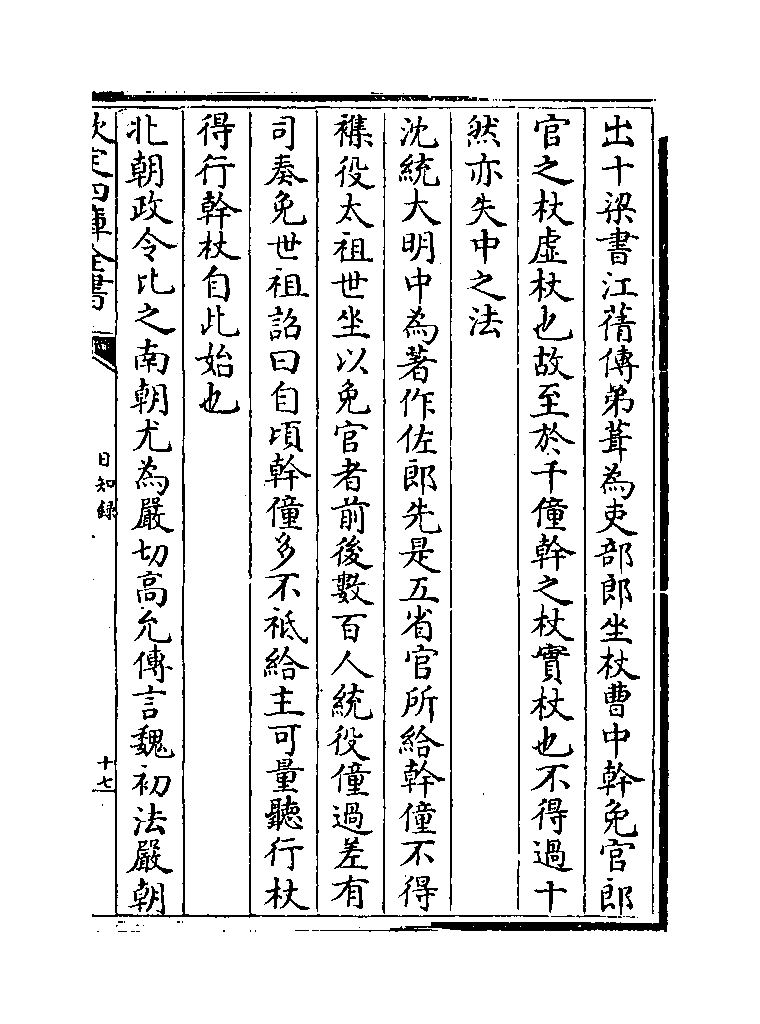 出十梁書江蒨傳弟葺為吏部郎坐杖曹中幹免官郎
官之杖虛杖也故至於千僮幹之杖實杖也不得過十
然亦失中之法
沈統大明中為著作佐郎先是五省官所給幹僮不得
襍役太祖世坐以免官者前後數百人統役僮過差有
司奏免世祖詔曰自頃幹僮多不祗給主可量聽行杖
得行幹杖自此始也
北朝政令比之南朝尤為嚴切高允傳言魏初法嚴朝
欽定四庫全書
日知錄
十七